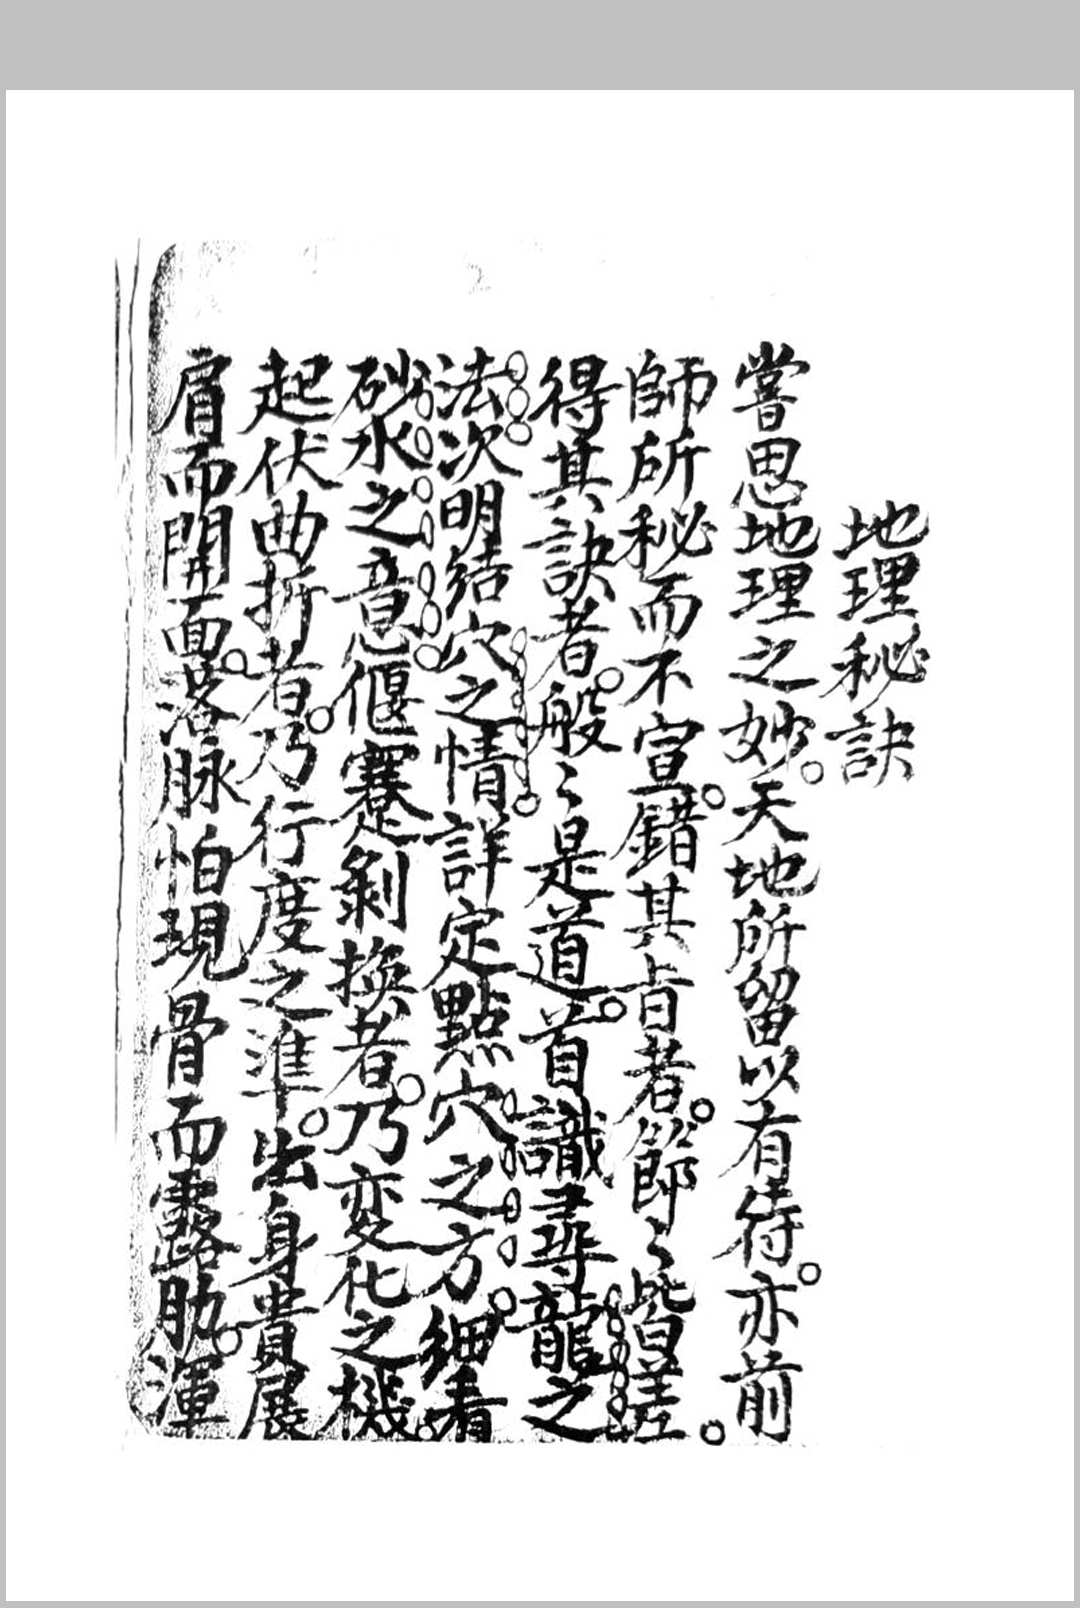 地理秘訣
嘗思地理之妙。天地所留以有待。亦前
師所秘而不宣。錯其旨者。節〻皆差。
得其訣者。般〻是道。首識尋龍之
法次明結穴之情。詳定點穴之方。細看
砂水之意。偃蹇剝換者。乃変化之機。
起伏曲折者。乃行度之準。出身貴展
肩而開面。落脉怕現骨而露肋。渾